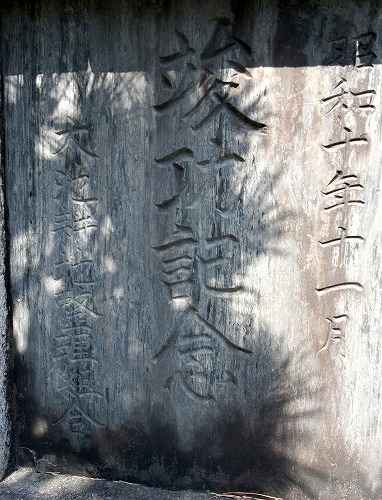 昭和十年十一月
竣功記念
大江耕地整理組合